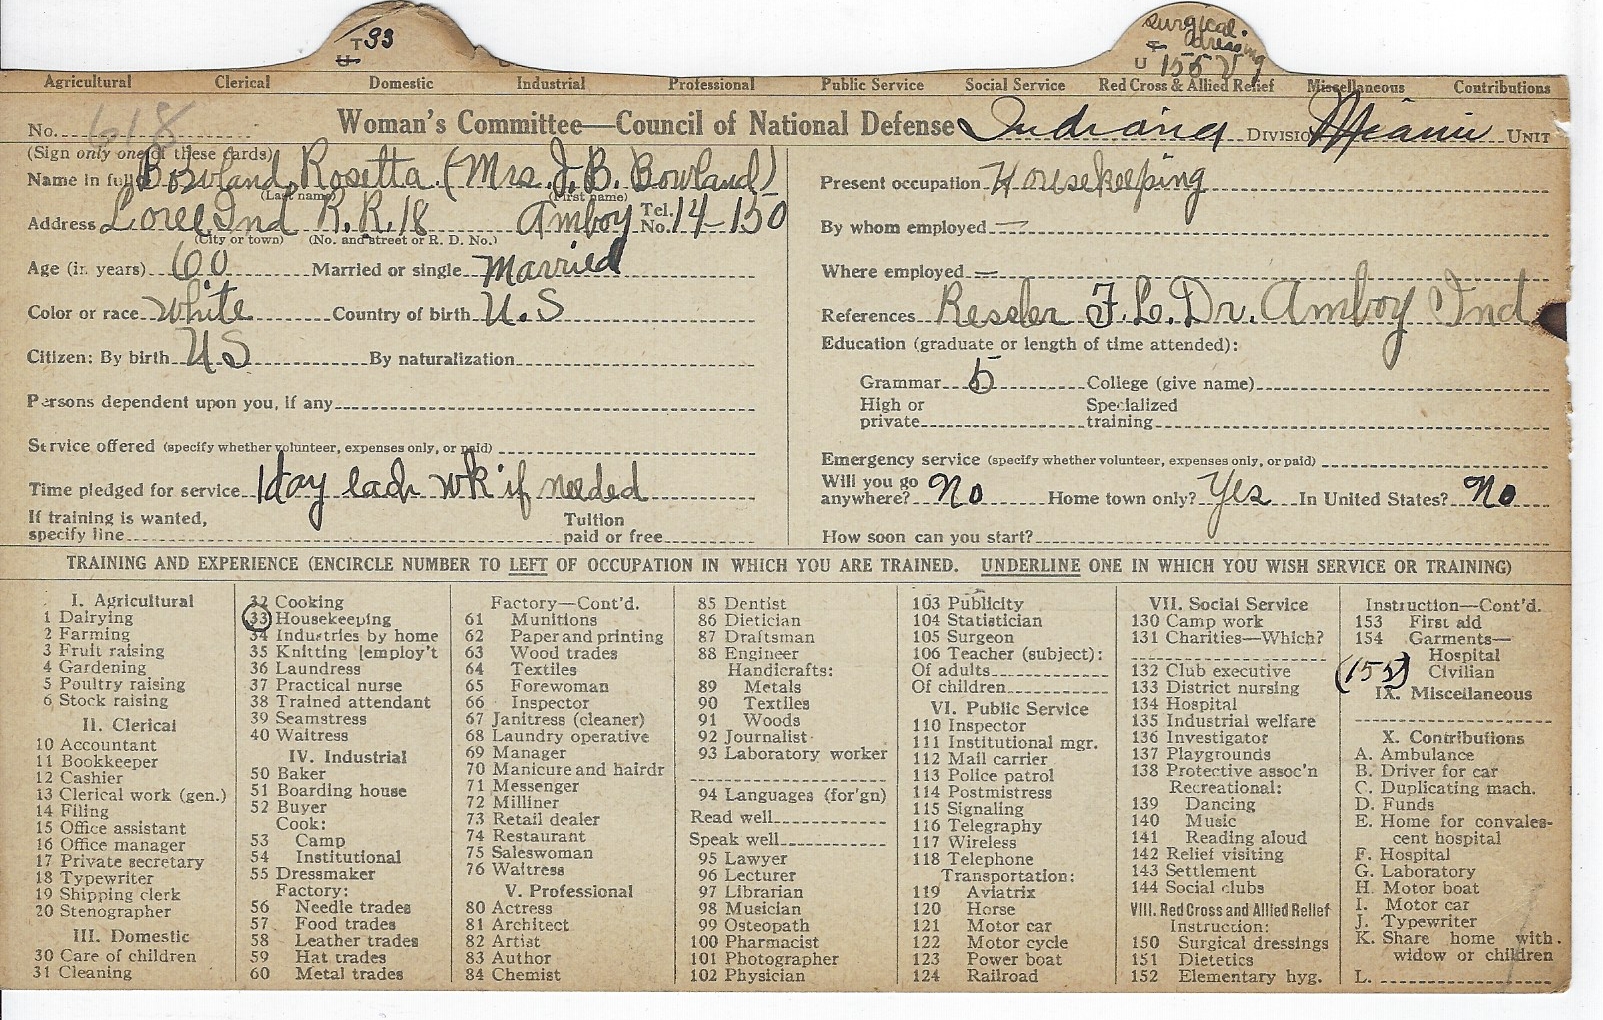 T 33
U
Surgical
dressing
U 155
Agricultural Clerical Domestic Industrial Professional Public Service Social Service Red Cross & Allied Relief Miscellaneous Contributions
No. 618 Woman's Committee—Council of National Defense Indiana DIVISION Miami UNIT
(Sign only one of these cards)
Name in full Bowland, Rosetta (Mrs. J. B. Bowland)
(Last name) (First name)
Address Loree Ind R.R. 18 Amboy Tel. No. 14-150
(City or town) (No. and street or R. D. No.)
Age (in years) 60 Married or single Married
Color or race White Country of birth U.S
Citizen: By birth US By naturalization
Persons dependent upon you, if any
Service offered (specify whether volunteer, expenses only, or paid)
Time pledged for service 1 day each wk if needed
If training is wanted, specify line Tuition paid or free
Present occupation Housekeeping
By whom employed —
Where employed =
References Ressler F.L. Dr. Amboy Ind
Education (graduate or length of time attended):
Grammar 5 College (give name)
High or private Specialized training
Emergency service (specify whether volunteer, expenses only, or paid)
Will you go anywhere? No Home town only? Yes In United States? No
How soon can you start?
TRAINING AND EXPERIENCE (ENCIRCLE NUMBER TO LEFT OF OCCUPATION IN WHICH YOU ARE TRAINED. UNDERLINE ONE IN WHICH YOU WISH SERVICE OR TRAINING)
I. Agricultural
1 Dairying
2 Farming
3 Fruit raising
4 Gardening
5 Poultry raising
6 Stock raising
II. Clerical
10 Accountant
11 Bookkeeper
12 Cashier
13 Clerical work (gen.)
14 Filing
15 Office assistant
16 Office manager
17 Private secretary
18 Typewriter
19 Shipping clerk
20 Stenographer
III. Domestic
30 Care of children
31 Cleaning
32 Cooking
33 Housekeeping
34 Industries by home
35 Knitting [employ't
36 Laundress
37 Practical nurse
38 Trained attendant
39 Seamstress
40 Waitress
IV. Industrial
50 Baker
51 Boarding house
52 Buyer
Cook:
53 Camp
54 Institutional
55 Dressmaker
Factory:
56 Needle trades
57 Food trades
58 Leather trades
59 Hat trades
60 Metal trades
Factory—Cont'd.
61 Munitions
62 Paper and printing
63 Wood trades
64 Textiles
65 Forewoman
66 Inspector
67 Janitress (cleaner)
68 Laundry operative
69 Manager
70 Manicure and hairdr
71 Messenger
72 Milliner
73 Retail dealer
74 Restaurant
75 Saleswoman
76 Waitress
V. Professional
80 Actress
81 Architect
82 Artist
83 Author
84 Chemist
85 Dentist
86 Dietician
87 Draftsman
88 Engineer
Handicrafts:
89 Metals
90 Textiles
91 Woods
92 Journalist
93 Laboratory worker
94 Languages (for'gn)
Read well
Speak well
95 Lawyer
96 Lecturer
97 Librarian
98 Musician
99 Osteopath
100 Pharmacist
101 Photographer
102 Physician
103 Publicity
104 Statistician
105 Surgeon
106 Teacher (subject):
Of adults
Of children
VI. Public Service
110 Inspector
111 Institutional mgr.
112 Mail carrier
113 Police patrol
114 Postmistress
115 Signaling
116 Telegraphy
117 Wireless
118 Telephone
Transportation:
119 Aviatrix
120 Horse
121 Motor car
122 Motor cycle
123 Power boat
124 Railroad
VII. Social Service
130 Camp work
131 Charities—Which?
132 Club executive
133 District nursing
134 Hospital
135 Industrial welfare
136 Investigator
137 Playgrounds
138 Protective assoc'n
Recreational:
139 Dancing
140 Music
141 Reading aloud
142 Relief visiting
143 Settlement
144 Social clubs
VIII. Red Cross and Allied Relief
Instruction:
150 Surgical dressings
151 Dietetics
152 Elementary hyg.
Instruction—Cont'd.
153 First aid
154 Garments—
Hospital
(155) Civilian
IX. Miscellaneous
X. Contributions
A. Ambulance
B. Driver for car
C. Duplicating mach.
D. Funds
E. Home for convales-
cent hospital
F. Hospital
G. Laboratory
H. Motor boat
I. Motor car
J. Typewriter
K. Share home with
widow or children
L.